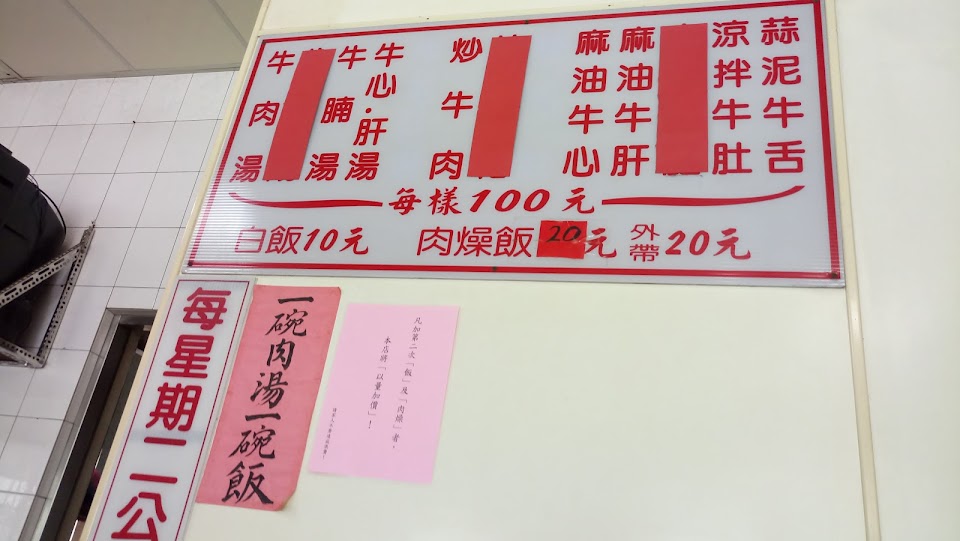 牛肉湯
牛腩湯
牛心·肝湯
炒牛肉
麻油牛心
麻油牛肝
涼拌牛肚
蒜泥牛舌
每樣100元
白飯10元 肉燥飯20元 外帶20元
每星期二公
一碗肉湯一碗飯
凡加第二次「飯」及「肉燥」者,
本店將「以量加價」!